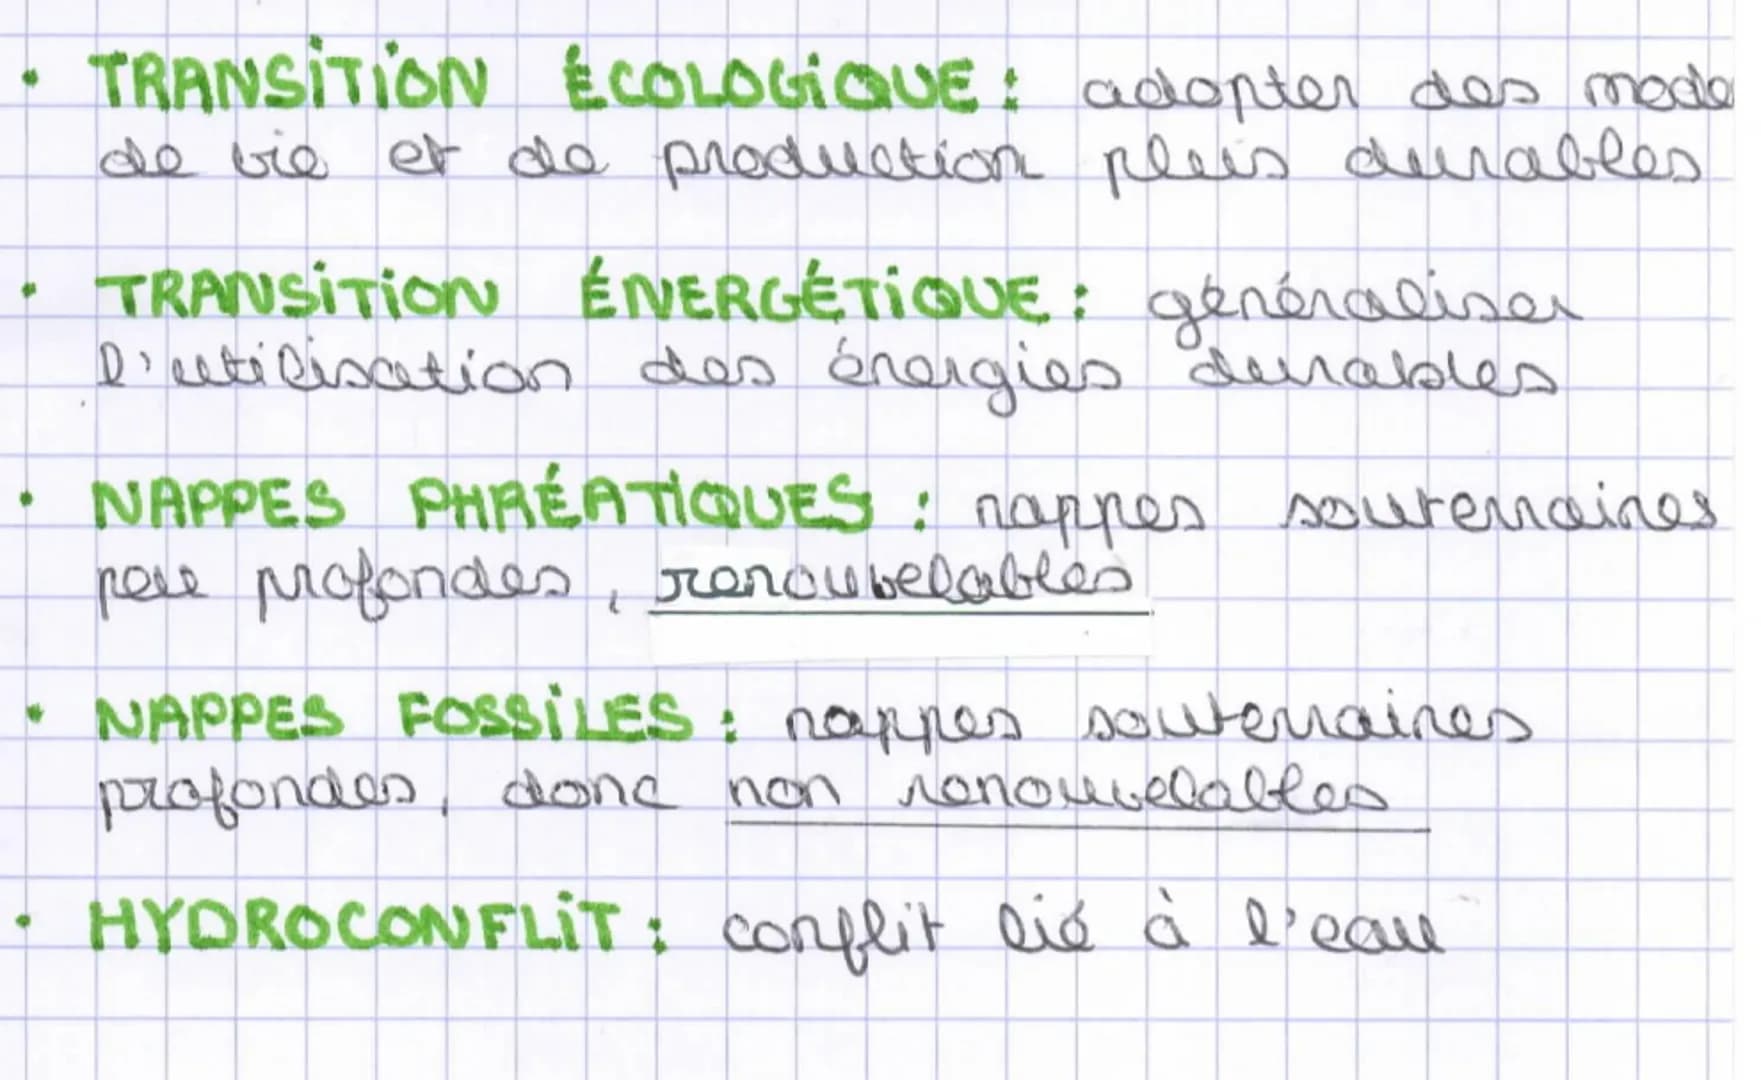 • TRANSITION ÉCOLOGIQUE : adopter des mode
de vie et de production plus durables
• TRANSITION ÉNERGÉTIQUE : généraliser
l'utilisation des énergies durables
• NAPPES PHRÉATIQUES : nappes souterraines
peu profondes, renouvelables
• NAPPES FOSSILES : nappes souterraines
profondes, donc non renouvelables
• HYDROCONFLIT : conflit lié à l'eau